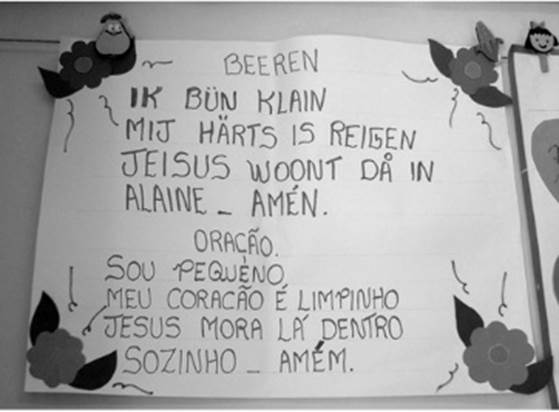 BEEREN
IK BÜN KLAIN
MIJ HÄRTS IS REIGEN
JEISUS WOONT DÅ IN
ALAINE _ AMÉN.
ORAÇÃO.
SOU PEQUENO
MEU CORACÃO É LIMPINHO
JESUS MORA LÁ DENTRO
SOZINHO _ AMÉM.